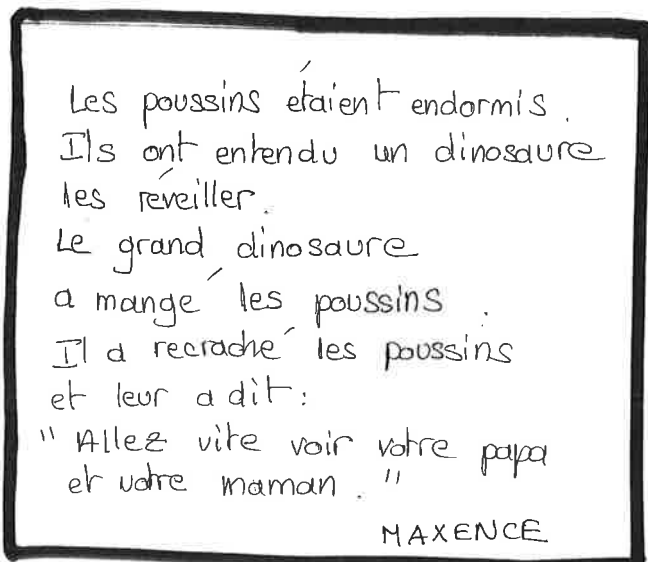 Les poussins étaient endormis.
Ils ont entendu un dinosaure
les réveiller.
Le grand dinosaure
a mangé les poussins.
Il a recraché les poussins
et leur a dit:
"Allez vite voir votre papa
et votre maman."
MAXENCE